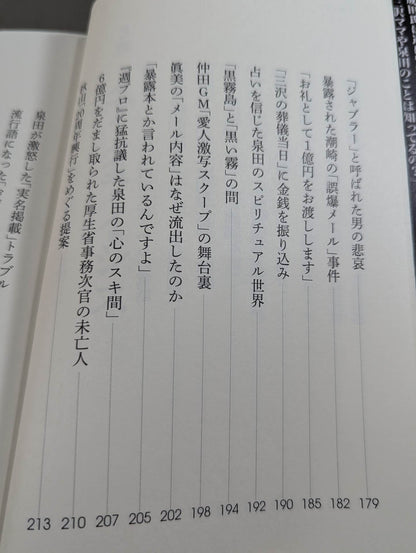 「ジャブラー」と呼ばれた男の悲哀 179
暴露された潮崎の「誤爆メール」事件 182
「お礼として1億円をお渡しします」 185
「三沢の葬儀当日」に金銭を振り込み 190
占いを信じた泉田のスピリチュアル世界 192
「黒霧島」と「黒い霧」の間 194
仲田GM「愛人激写スクープ」の舞台裏 198
眞美の「メール内容」はなぜ流出したのか 202
「暴露本とか言われているんですよ」 205
『週プロ』に猛抗議した泉田の「心のスキ間」 207
6億円をだまし取られた厚生省事務次官の未亡人 210
周年興行」をめぐる提案 213
泉田が激怒した「実名掲載」トラブル
流行語になった